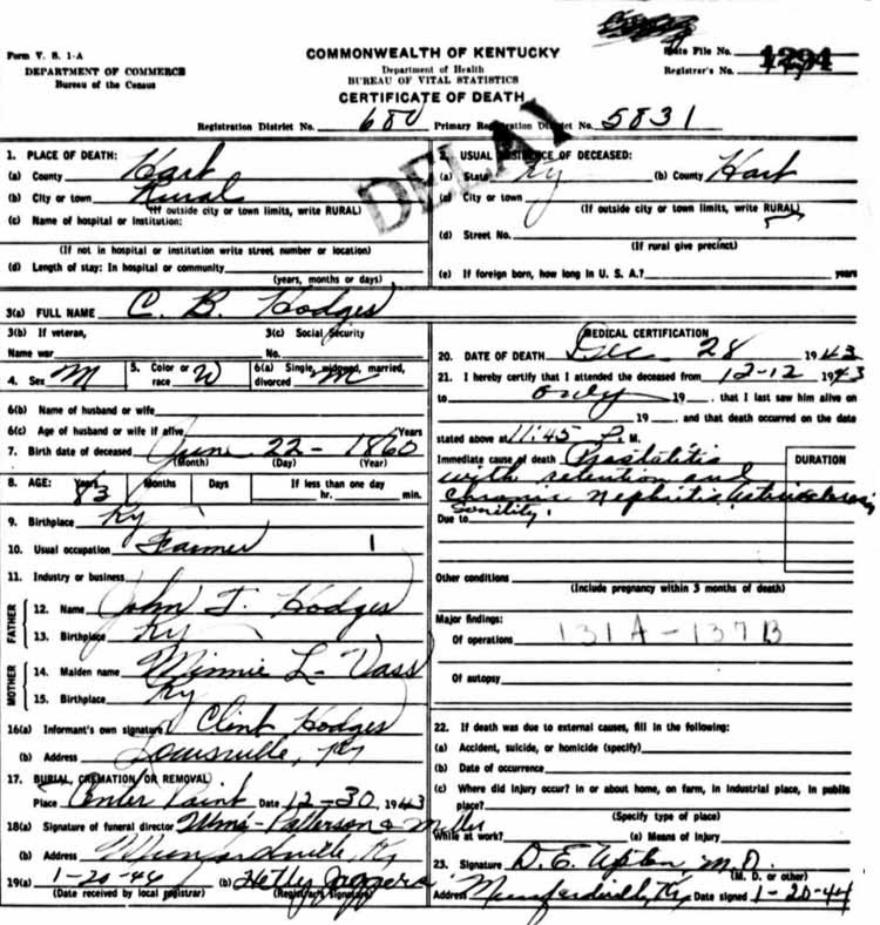 Form V. S. 1-A
DEPARTMENT OF COMMERCE
Bureau of the Census
COMMONWEALTH OF KENTUCKY
Department of Health
BUREAU OF VITAL STATISTICS
CERTIFICATE OF DEATH
State File No.
Registrar's No. 1294
Registration District No. 680 Primary Registration District No. 5831
DELAY
1. PLACE OF DEATH:
(a) County Hart
(b) City or town Rural
(If outside city or town limits, write RURAL)
(c) Name of hospital or institution:
(If not in hospital or institution write street number or location)
(d) Length of stay: In hospital or community
(years, months or days)
2. USUAL RESIDENCE OF DECEASED:
(a) State Ky (b) County Hart
(c) City or town
(If outside city or town limits, write RURAL)
(d) Street No.
(If rural give precinct)
(e) If foreign born, how long in U. S. A.? years
3(a) FULL NAME C. B. Hodges
3(b) If veteran,
Name war
3(c) Social Security
No.
4. Sex M 5. Color or race W 6(a) Single, widowed, married, divorced M
6(b) Name of husband or wife
6(c) Age of husband or wife if alive Years
7. Birth date of deceased June 22 - 1860
(Month) (Day) (Year)
8. AGE: Years 83 Months Days If less than one day
hr. min.
9. Birthplace Ky
10. Usual occupation Farmer 1
11. Industry or business
FATHER
12. Name John T. Hodges
13. Birthplace Ky
MOTHER
14. Maiden name Minnie L- Vass
15. Birthplace Ky
16(a) Informant's own signature Clint Hodges
(b) Address Louisville, Ky
17. BURIAL, CREMATION, OR REMOVAL
Place Center Point Date 12-30, 1943
18(a) Signature of funeral director Patterson & Miller
(b) Address Munfordville, Ky
19(a) 1-20-44 (b) Hetty
(Date received by local registrar) (Registrar's signature)
MEDICAL CERTIFICATION
20. DATE OF DEATH Dec 28 1943
21. I hereby certify that I attended the deceased from 12-12 1943
to only 19 , that I last saw him alive on
19 , and that death occurred on the date
stated above at 11:45 P. M.
Immediate cause of death Prostatitis
with retention and
chronic nephritis arteriosclerosis
DURATION
Due to Senility.
Other conditions
(Include pregnancy within 3 months of death)
Major findings:
Of operations 131A-137B
Of autopsy
22. If death was due to external causes, fill in the following:
(a) Accident, suicide, or homicide (specify)
(b) Date of occurrence
(c) Where did injury occur? In or about home, on farm, in industrial place, in public
place?
(Specify type of place)
While at work? (e) Means of Injury
23. Signature D. E. Upton, M.D.
(M. D. or other)
Address Munfordville, Ky, Date signed 1-20-44